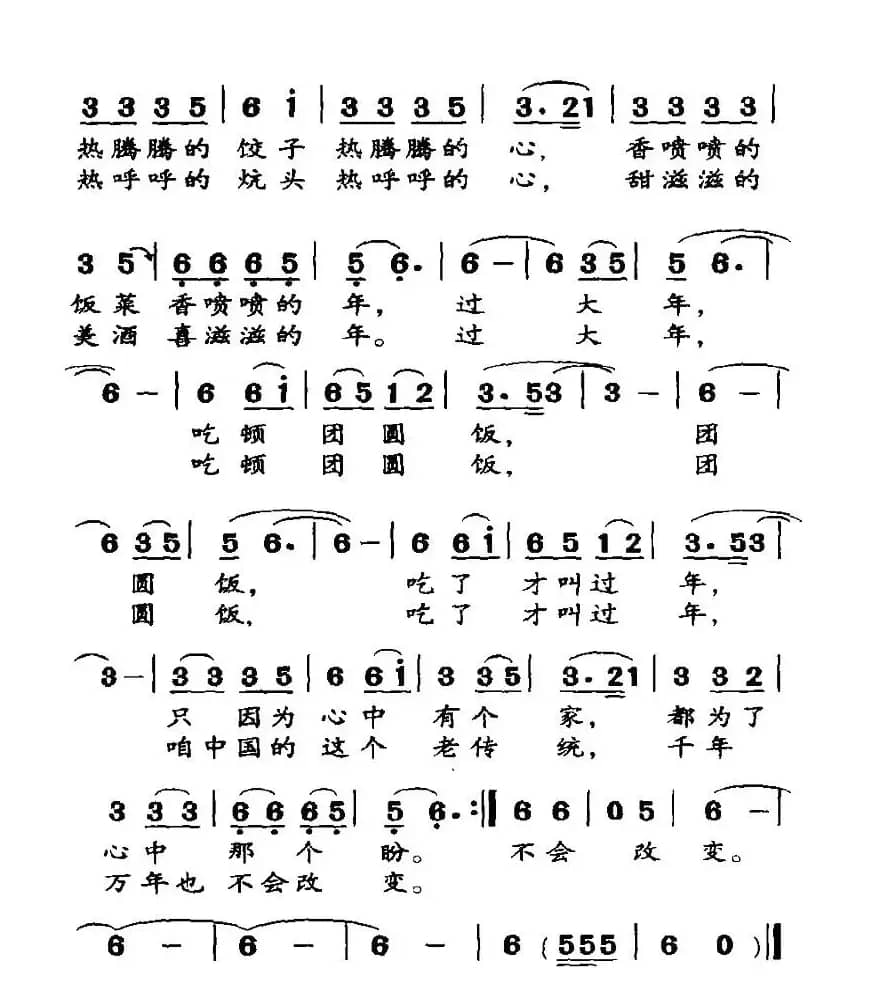 3 3 3 5 | 6 i | 3 3 3 5 | 3. 2 1 | 3 3 3 3 |
热腾腾的 饺子 热腾腾的 心, 香喷喷的
热呼呼的 炕头 热呼呼的 心, 甜滋滋的
3 5 | 6 6 6 5 | 5 6. | 6 - | 6 3 5 | 5 6. |
饭菜 香喷喷的 年, 过 大 年,
美酒 喜滋滋的 年。 过 大 年,
6 - | 6 6 i | 6 5 1 2 | 3. 5 3 | 3 - | 6 - |
吃 顿 团 圆 饭, 团
吃 顿 团 圆 饭, 团
6 3 5 | 5 6. | 6 - | 6 6 i | 6 5 1 2 | 3. 5 3 |
圆 饭, 吃了 才叫过 年,
圆 饭, 吃了 才叫过 年,
3 - | 3 3 3 5 | 6 6 i | 3 3 5 | 3. 2 1 | 3 3 2 |
只 因为 心中 有个 家, 都为了
咱中国的 这个 老传 统, 千年
3 3 3 | 6 6 6 5 | 5 6. :| 6 6 | 0 5 | 6 - |
心中 那 个 盼。 不会 改 变。
万年也 不会改 变。
6 - | 6 - | 6 - | 6 ( 5 5 5 | 6 0 ) |